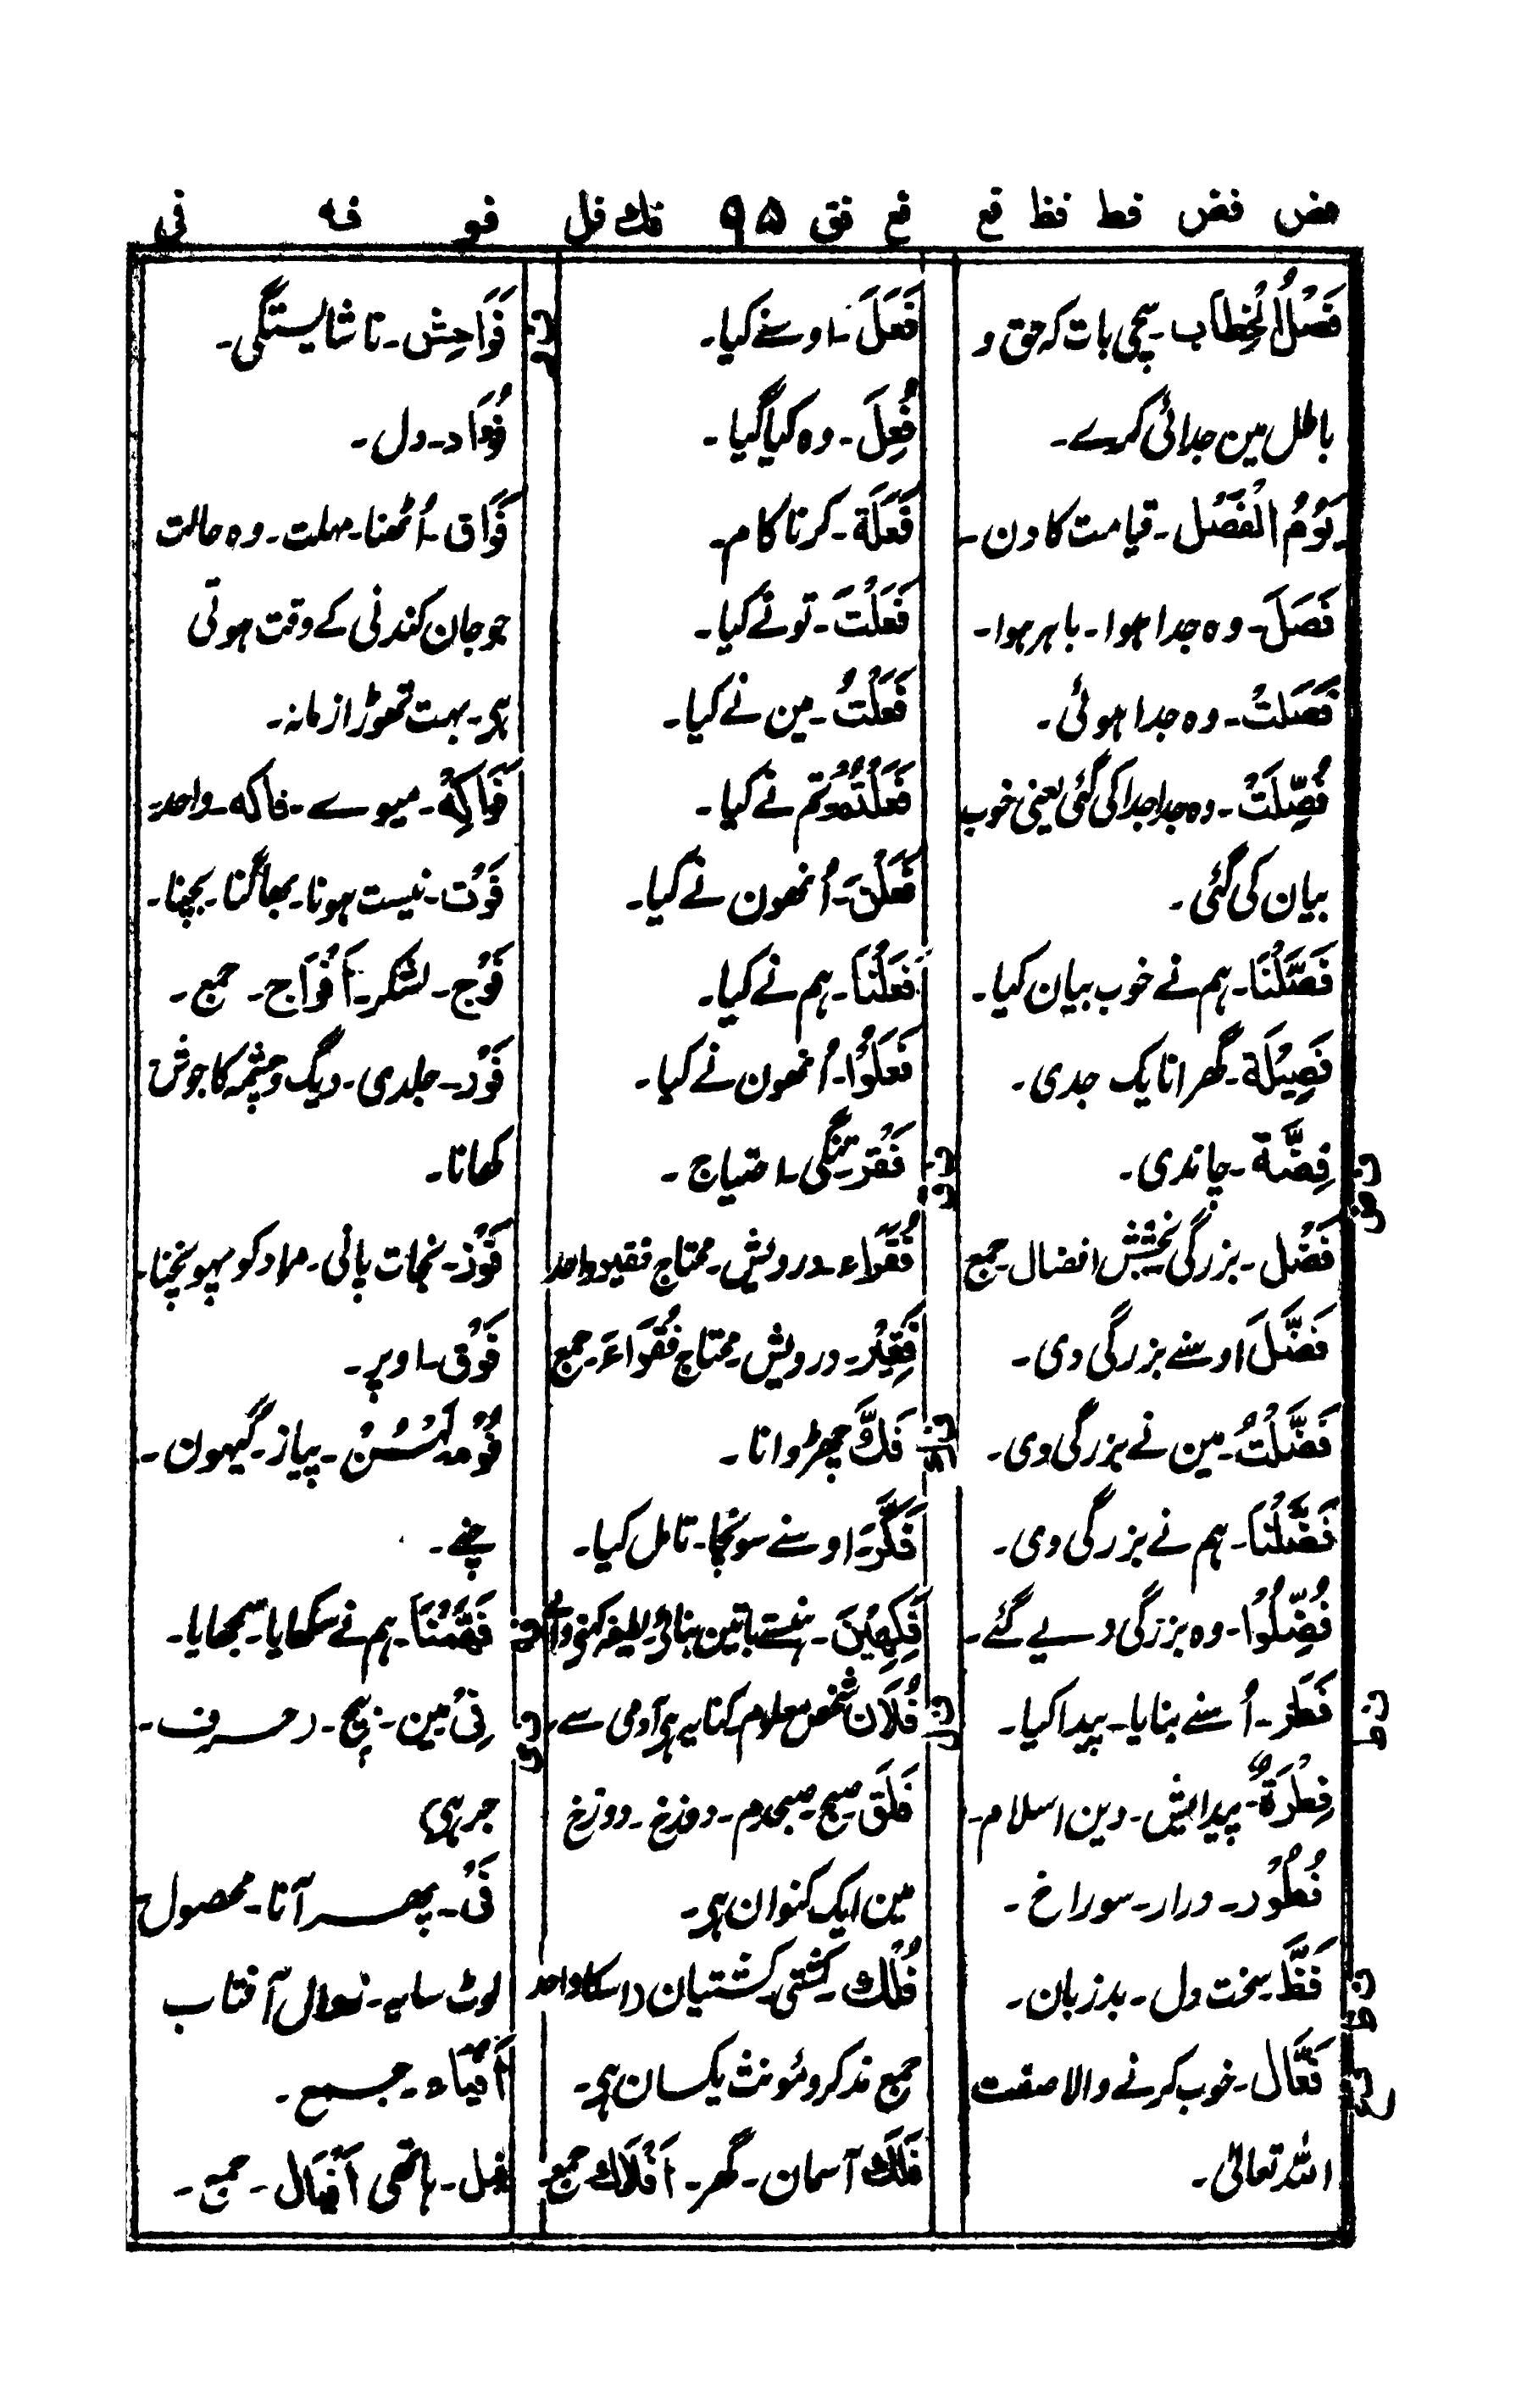 فص فض فط فظ فع فع فق ۹۵ فك فل فو فه فی
فَصْلُ الْخِطَاب۔ سچی بات کہ حق و
باطل مین جدائی کرے۔
یَوْمُ الْفَصْل۔ قیامت کا دن۔
فَصَلَ۔ وہ جدا ہوا۔ باہر ہوا۔
فَصَلَتْ۔ وہ جدا ہوئی۔
فُصِّلَتْ۔ وہ جدا جدا کی گئی یعنی خوب
بیان کی گئی۔
فَصَّلْنَا۔ ہم نے خوب بیان کیا۔
فَصِیْلَة۔ گھرانا یک جدی۔
فض
فِضَّة۔ چاندی۔
فَضْل۔ بزرگی بخشش افضال۔ جمع
فَضَّلَ اوسنے بزرگی دی۔
فَضَّلْتُ۔ مین نے بزرگی دی۔
فَضَّلْنَا۔ ہم نے بزرگی دی۔
فُضِّلُوْا۔ وہ بزرگی دیے گئے۔
فط
فَطَرَ۔ اُسنے بنایا۔ پیدا کیا۔
فِطْرَةٌ۔ پیدایش۔ دین اسلام۔
فُطُوْر۔ درار۔ سوراخ۔
فظ
فَظّ۔ سخت دل۔ بدزبان۔
فع
فَعَّال۔ خوب کرنے والا صفت
اللہ تعالیٰ۔
فَعَلَ۔ اوسنے کیا۔
فُعِلَ۔ وہ کیا گیا۔
فَعَلَة۔ کرنا کام۔
فَعَلْتَ۔ تونے کیا۔
فَعَلْتُ۔ مین نے کیا۔
فَعَلْتُمْ۔ تم نے کیا۔
فَعَلْنَ۔ اُنھون نے کیا۔
فَعَلْنَا۔ ہم نے کیا۔
فَعَلُوْا۔ اُنھون نے کیا۔
فق
فَقْر۔ تنگی۔ احتیاج۔
فُقَرَاء۔ درویش۔ محتاج فقیر واحد
فَقِیْر۔ درویش۔ محتاج فُقَرَاءَ۔ جمع
فك
فَكَّ چھڑوانا۔
فَكَّرَ۔ اوسنے سونچا۔ تامل کیا۔
فَكِهِیْنَ۔ ہنستے باتین بناتے لطیفہ کہنے والے
فل
فُلَان شخص معلوم کنایہ ہی آدمی سے۔
فَلَق صبح۔ صبحدم۔ دوزخ۔ دوزخ
مین ایک کنوان ہی۔
فُلْك۔ کشتی۔ کشتیان داسکا واحد
جمع مذکر و مؤنث یکسان ہی۔
فَلَك آسمان۔ گھر۔ اَفْلَاك جمع
فو
فَوَاحِش۔ ناشایستگی۔
فُؤَاد۔ دل۔
فَوَاق۔ اُٹھنا۔ مہلت۔ وہ حالت
جو جان کندنی کے وقت ہوتی
ہی۔ بہت تھوڑا زمانہ۔
فَوَاكِهُ۔ میوے۔ فاکہ۔ واحد۔
فَوْت۔ نیست ہونا۔ بھاگنا۔ بچنا۔
فَوْج۔ لشکر۔ اَفْوَاج۔ جمع۔
فَوْر۔ جلدی۔ دیگ و چشمہ کا جوش
کھانا۔
فَوْز۔ نجات پانی۔ مراد کو پہونچنا۔
فَوْق۔ اوپر۔
فُوْم۔ لَہْسُنْ۔ پیاز۔ گیہون۔
چنے۔
فه
فَهَّمْنَا۔ ہم نے سکھایا۔ سمجھایا۔
فی
فِیْ مین۔ بیچ۔ (حرف۔
جر ہی)
فَیْ۔ پھر آنا۔ محصول
لوٹ سایہ۔ زوال آفتاب
اَفْیَاء۔ جمع۔
فیل۔ ہاتھی اَفْیَال۔ جمع۔